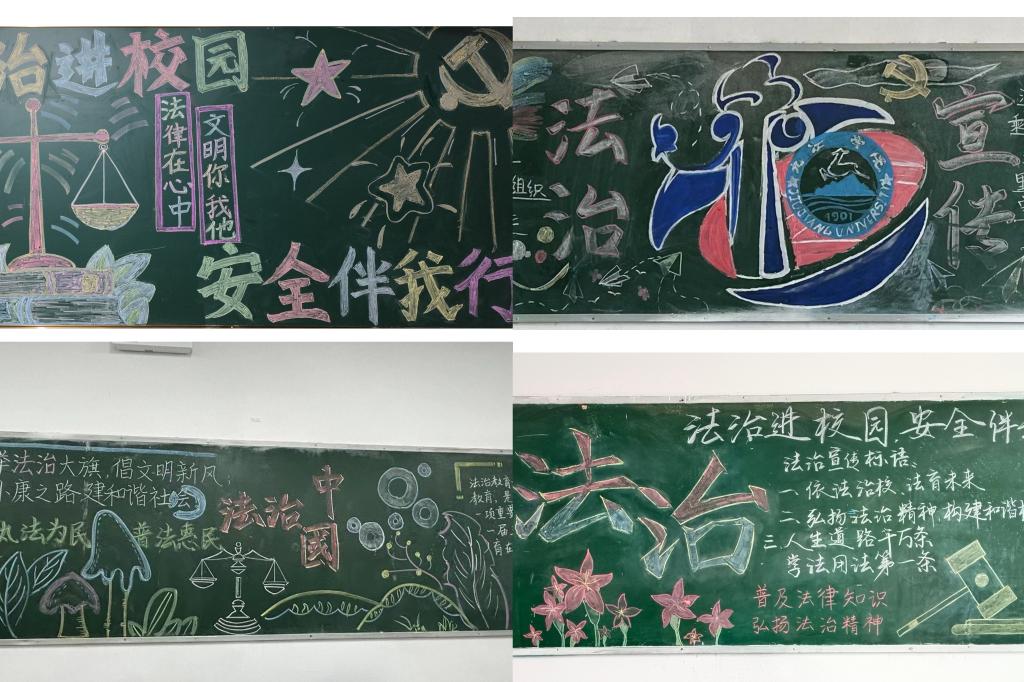 治进校园
法律在心中
文明你我他
安全伴我行
法治
宣传
组织
JIUJIANG UNIVERSITY
1901
举法治大旗,倡文明新风,
小康之路,建和谐社会
执法为民 普法惠民
法治中国
法治教育
教育,是
一项重要
法治
法治进校园,安全伴
法治宣传标语:
一、依法治校、法育未来
二、弘扬法治精神,构建和谐校
三、人生道路千万条
学法用法第一条
普及法律知识
弘扬法治精神